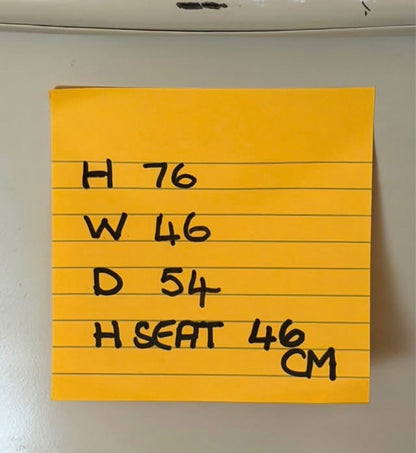 H 76
W 46
D 54
H SEAT 46
CM